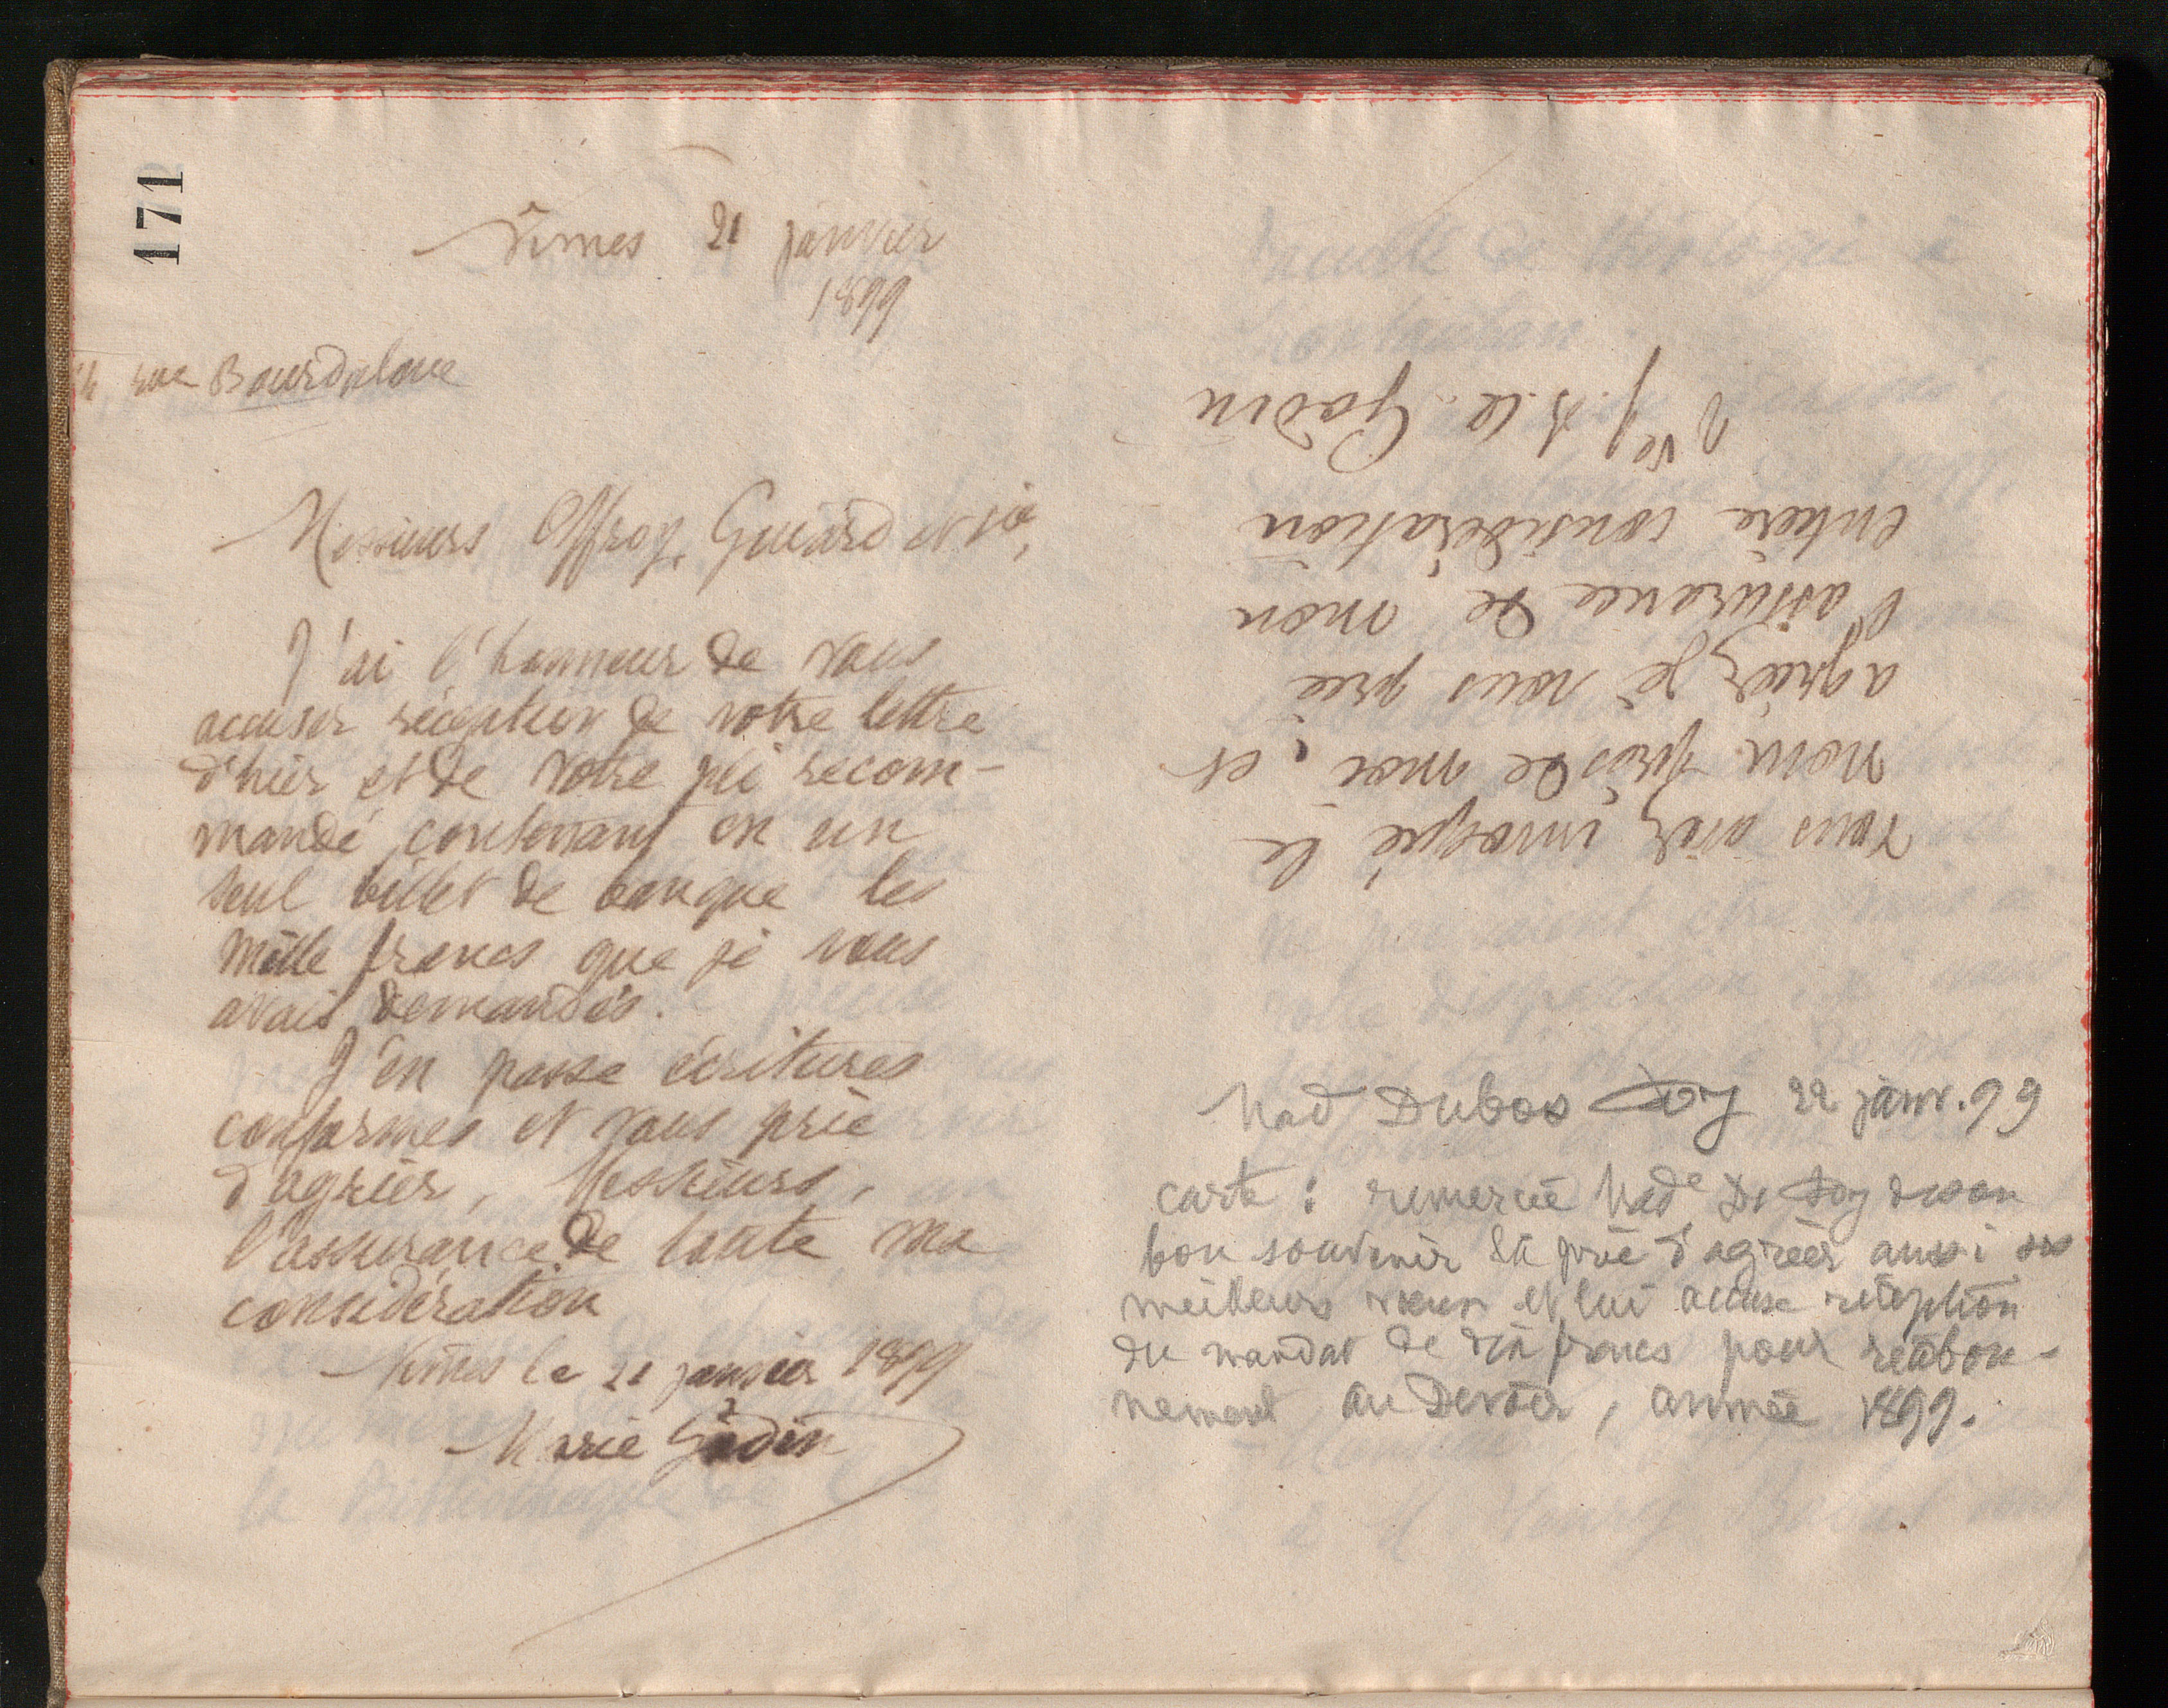 171
Nîmes 21 janvier
1899
rue Bourdaloue
Messieurs Offroy, Guiard et Cie,
J'ai l'honneur de vous
accuser réception de votre lettre
d'hier et de votre pli recom-
mandé contenant en un
seul billet de banque les
mille francs que je vous
avais demandés.
J'en passe écritures
conformes et vous prie
d'agréer, Messieurs,
l'assurance de toute ma
considération
Nîmes le 21 janvier 1899
Marie Godin
vous avez invoqué le
nom près de moi, et
agréez je vous prie
l'assurance de mon
entière considération
Vve J. B. A. Godin
Mad Dubos Doy 22 janv. 99
carte : remercie Made D. Doy de son
bon souvenir la prie d'agréer aussi ses
meilleurs vœux et lui accuse réception
du mandat de dix francs pour réabon-
nement au Devoir, année 1899.